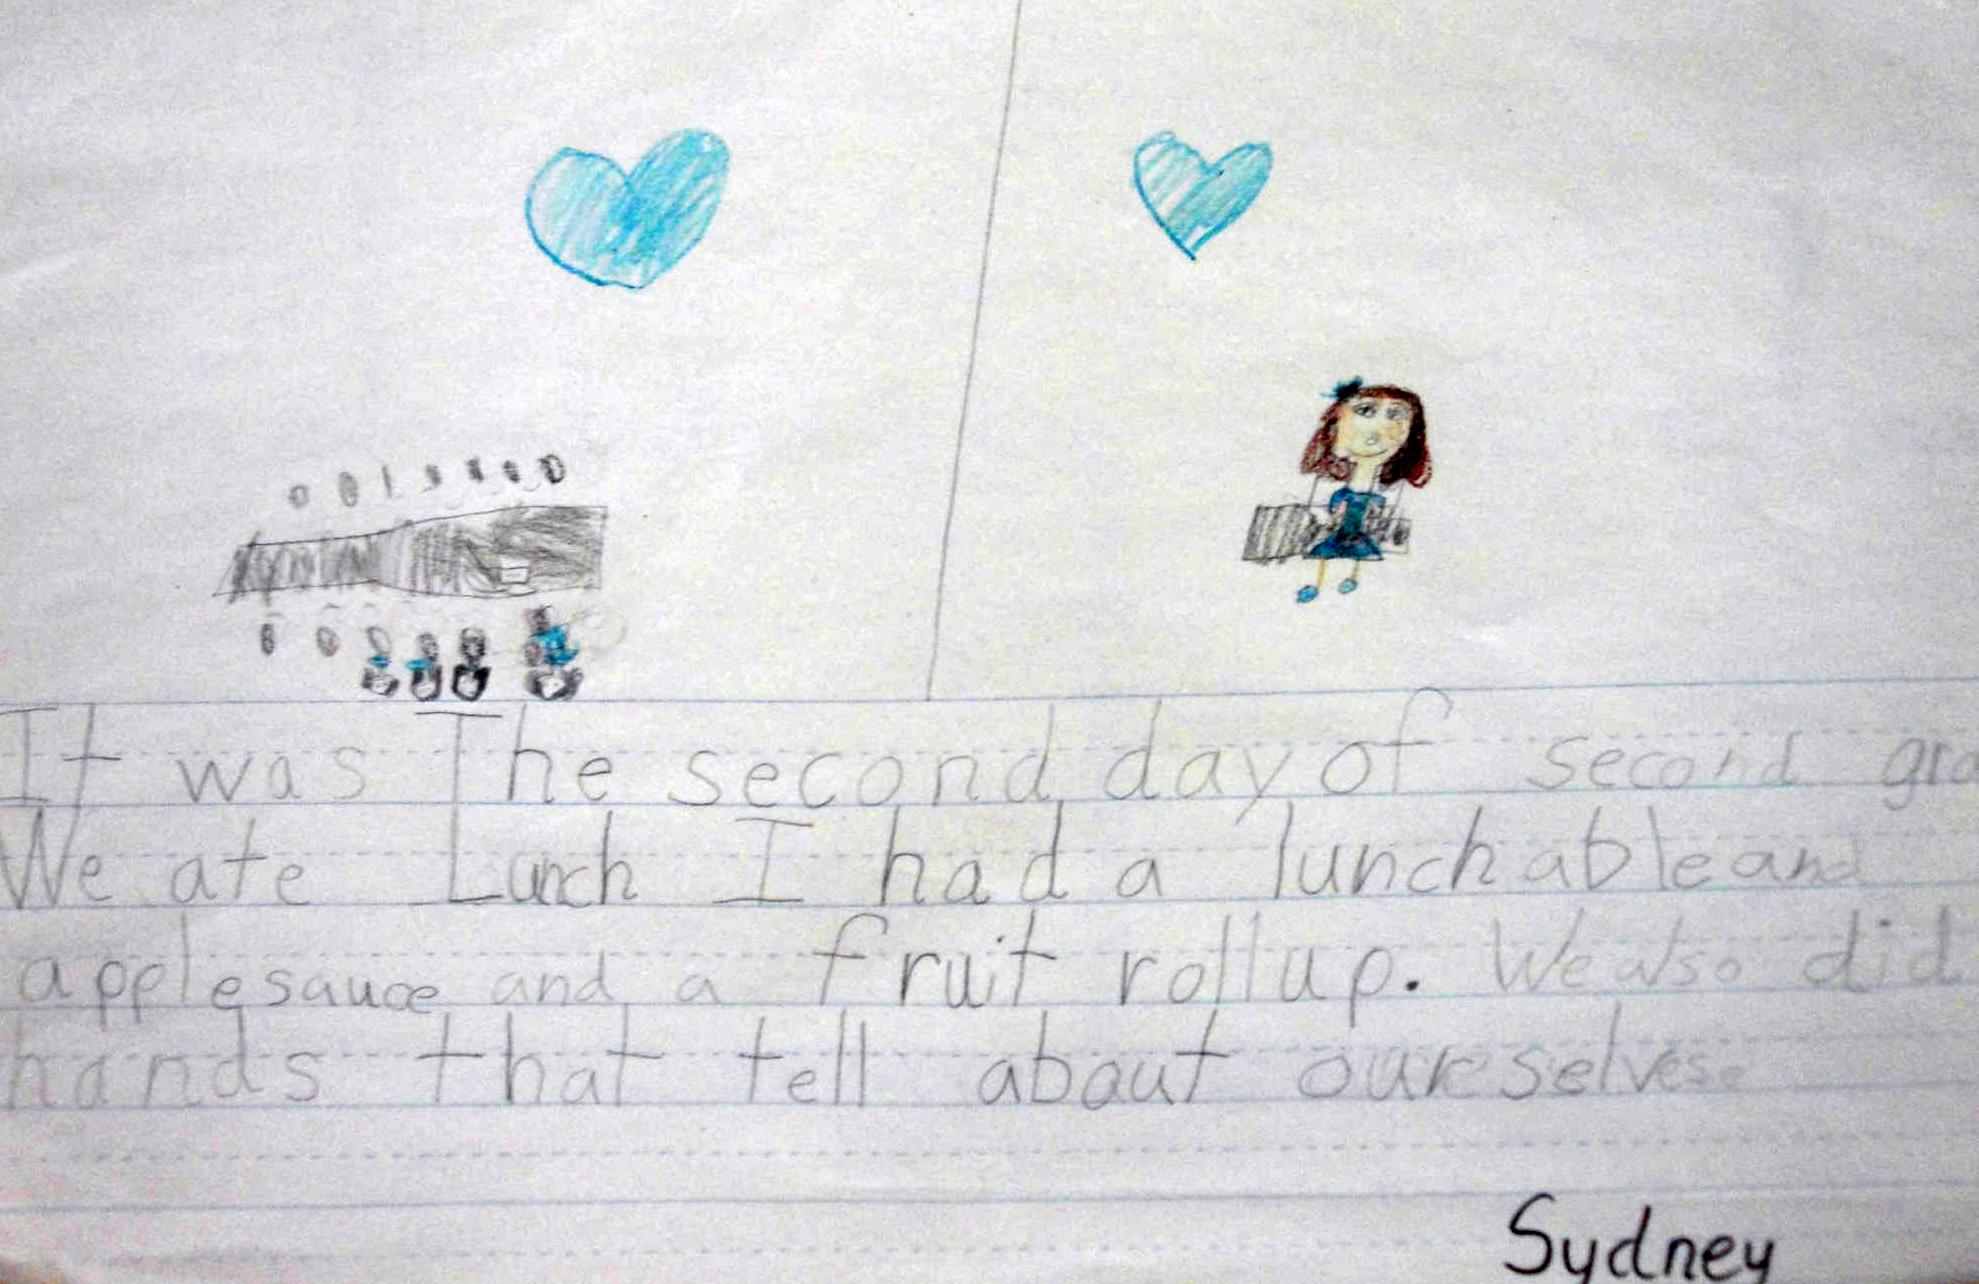 It was The second day of second gra
We ate Lunch I had a lunchable and
applesauce and a fruit rollup. We also did
hands that tell about ourselves.
Sydney